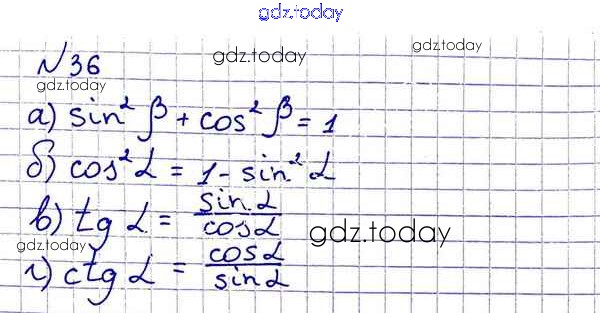 gdz.today
№36
gdz.today
gdz.today
gdz.today
а) sin²β + cos²β = 1
б) cos²α = 1 - sin²α
в) tg α = sin α / cos α
gdz.today
gdz.today
г) ctg α = cos α / sin α